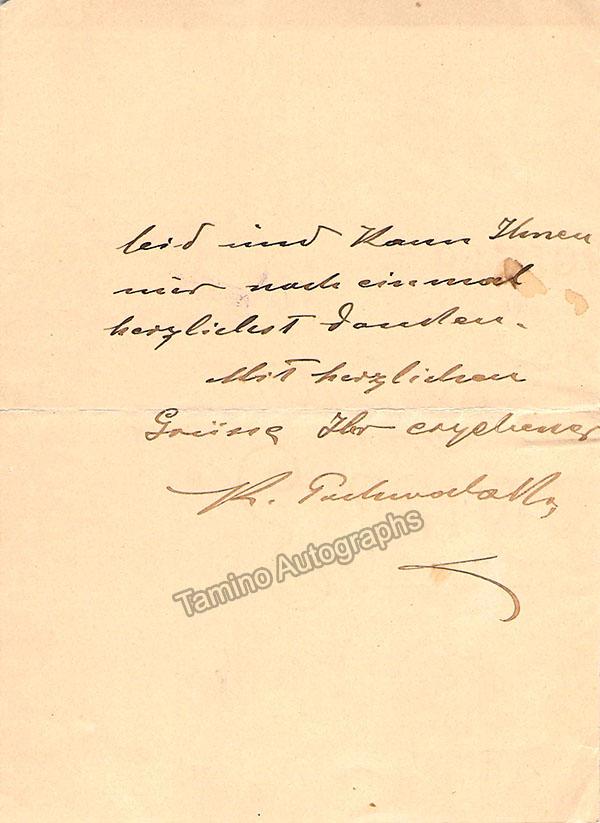 leid und kann Ihnen
nur noch einmal
herzlichst danken.
Mit herzlichen
Grüsse Ihr ergebener
K.
Tamino Autographs